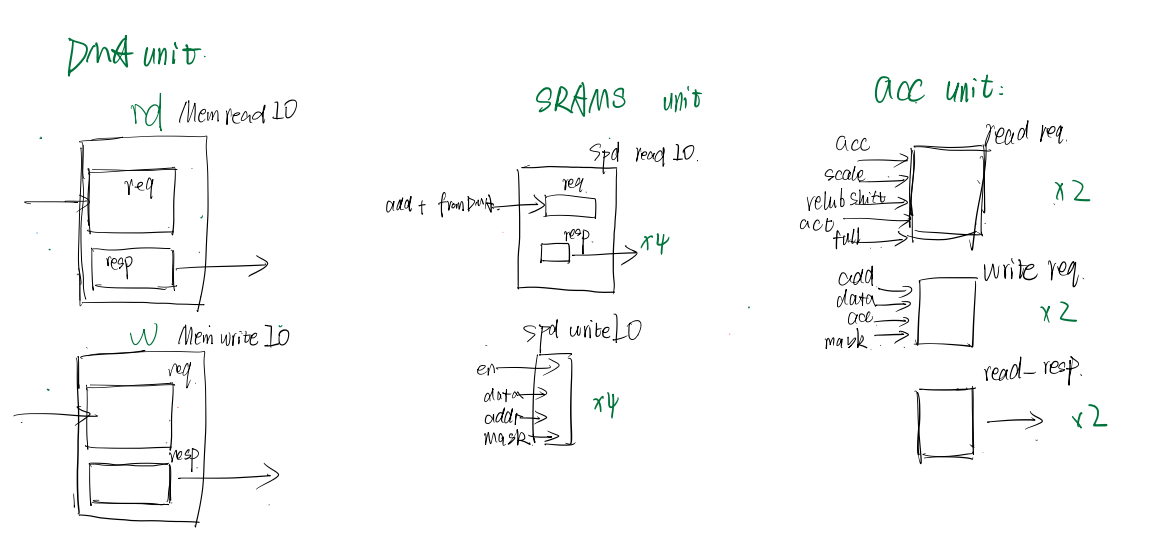 DMA unit.
rd Mem read IO
req
resp
W Mem write IO
req
resp
SRAMS unit
Spd read IO.
req.
add + fromDMA.
resp.
x4
Spd write IO
en
data
addr
mask
x4
acc unit:
read req.
acc
scale
relub shift
act
full
x2
write req.
add
data
acc
mask
x2
read-resp.
x2